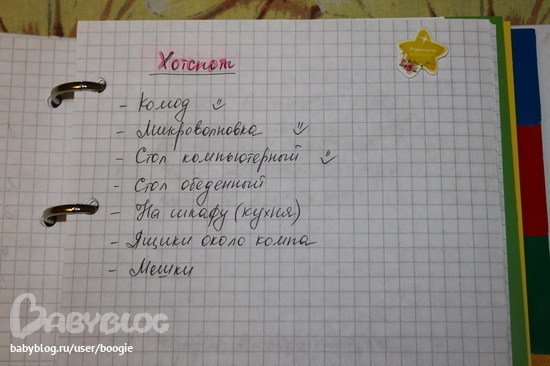 Хотспот
- Комод
- Микроволновка
- Стол компьютерный
- Стол обеденный
- На шкафу (кухня)
- Ящики около компа
- Мешки
BABYBLOG
babyblog.ru/user/boogie